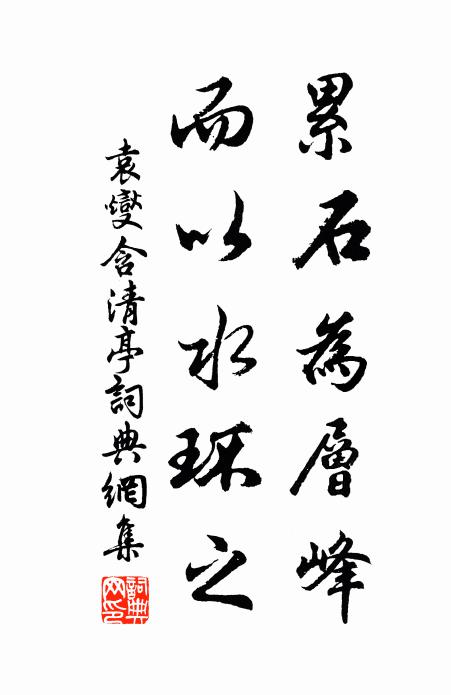 累石為層峰
而以水环之
袁燮含清亭詞典網集
詞典网印